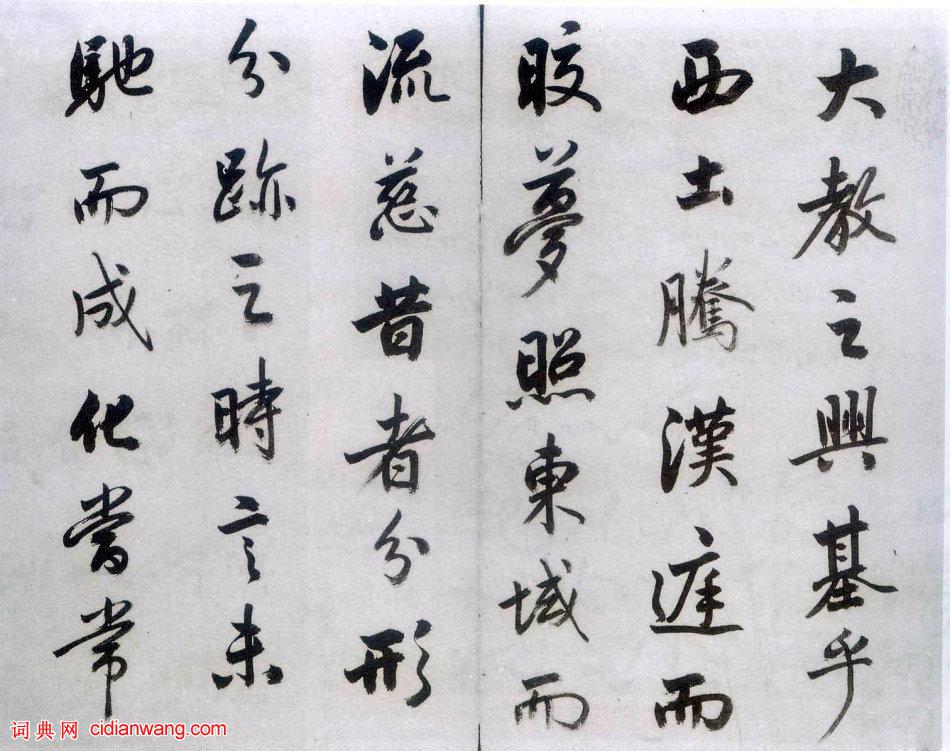 大教之興基乎
西土騰漢庭而
皎夢照東域而
流慈昔者分形
分跡之時言未
馳而成化當常
词典网 cidianwang.com